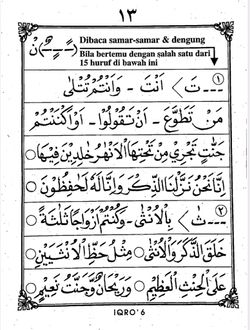 ١٣
نْ (ـًـ ـٍـ ـٌـ)
Dibaca samar-samar & dengung
Bila bertemu dengan salah satu dari
15 huruf di bawah ini
١ ... ت > اَنْتَ - وَاَنْتُمْ تُتْلٰى
مَنْ تَطَوَّعَ - اَنْ تَقُوْلُوْا - اَوْ اَكْنَنْتُمْ
جَنّٰتٍ تَجْرِيْ مِنْ تَحْتِهَا الْاَنْهٰرُ خٰلِدِيْنَ فِيْهَا
اِنَّا نَحْنُ نَزَّلْنَا الذِّكْرَ وَاِنَّا لَهٗ لَحٰفِظُوْنَ
٢ ... ث > بِالْاُنْثٰى - وَكُنْتُمْ اَزْوَاجًا ثَلٰثَةً
خَلَقَ الذَّكَرَ وَالْاُنْثٰى مِثْلُ حَظِّ الْاُنْثَيَيْنِ
عَلَى الْحِنْثِ الْعَظِيْمِ وَرَيْحَانٌ وَجَنَّتُ نَعِيْمٍ
IQRO' 6